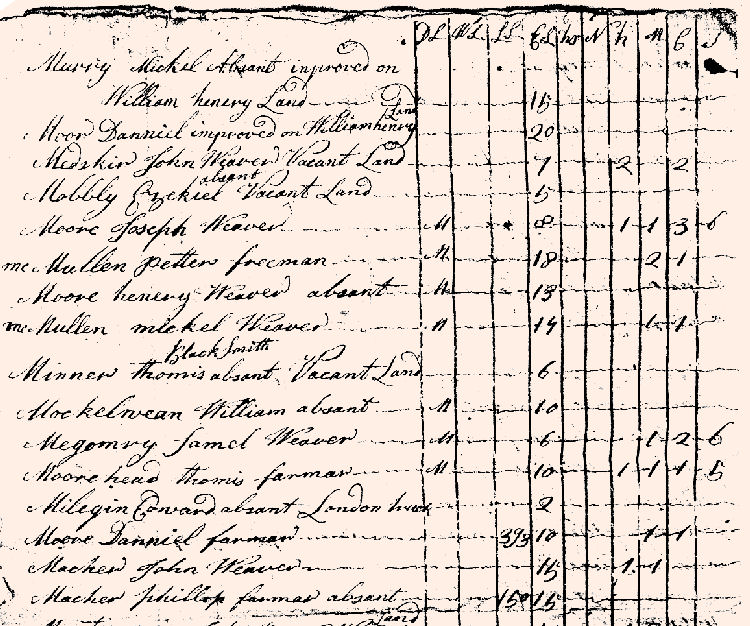 DL WL LL EL hs N h M C S
Murry Mickel Absant inproved on
William henery Land 15
Moor Danniel improved on William henry Land 20
Medskir John Weaver Vacant Land 7 2 2
Mobbly Ezekiel absant Vacant Land 5
Moore Joseph Weaver M 8 1 1 3 6
mc Mullen petter freeman M 18 2 1
Moore henery Weaver absant M 13
mc Mullen mickel Weaver M 14 1 1
Black Smith
Minner thomis absant Vacant Land 6
Mockelwean William absant M 10
Megomry Samel Weaver M 6 1 2 6
Moorehead thomis farmar M 10 1 1 1 5
Milegin Edward absant London 2
Moore Danniel farmar 393 10 1 1
Macher John Weaver 15 1 1
Macher phillop farmar absant 150 15
Land